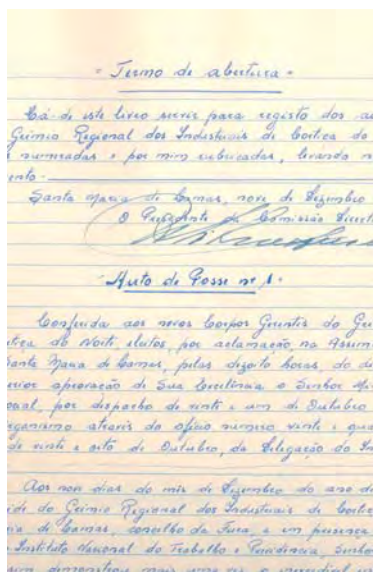 - Termo de abertura -
Há-de este livro servir para registo dos au
Grémio Regional dos Industriais de Cortiça do
numeradas e por mim rubricadas, levando n
ento.
Santa Maria de Lamas, nove de Dezembro
O Presidente da Comissão Direct
- Auto de Posse nº 1 -
Conferida aos novos Corpos Gerentes do Gré
tiça do Norte, eleitos, por aclamação, na Assem
Santa Maria de Lamas, pelas dezoito horas do d
erior aprovação de Sua Excelência o Senhor Mi
oual, por despacho de vinte e um de Outubro
rganismo através do ofício número vinte e qua
de vinte e oito de Outubro, da Delegação do In
Aos nove dias do mês de Dezembro do ano d
de do Grémio Regional dos Industriais de Cortiç
ia de Lamas, concelho da Feira, e em presença
Instituto Nacional do Trabalho e Previdência, Senho
demonstrou mais uma vez o